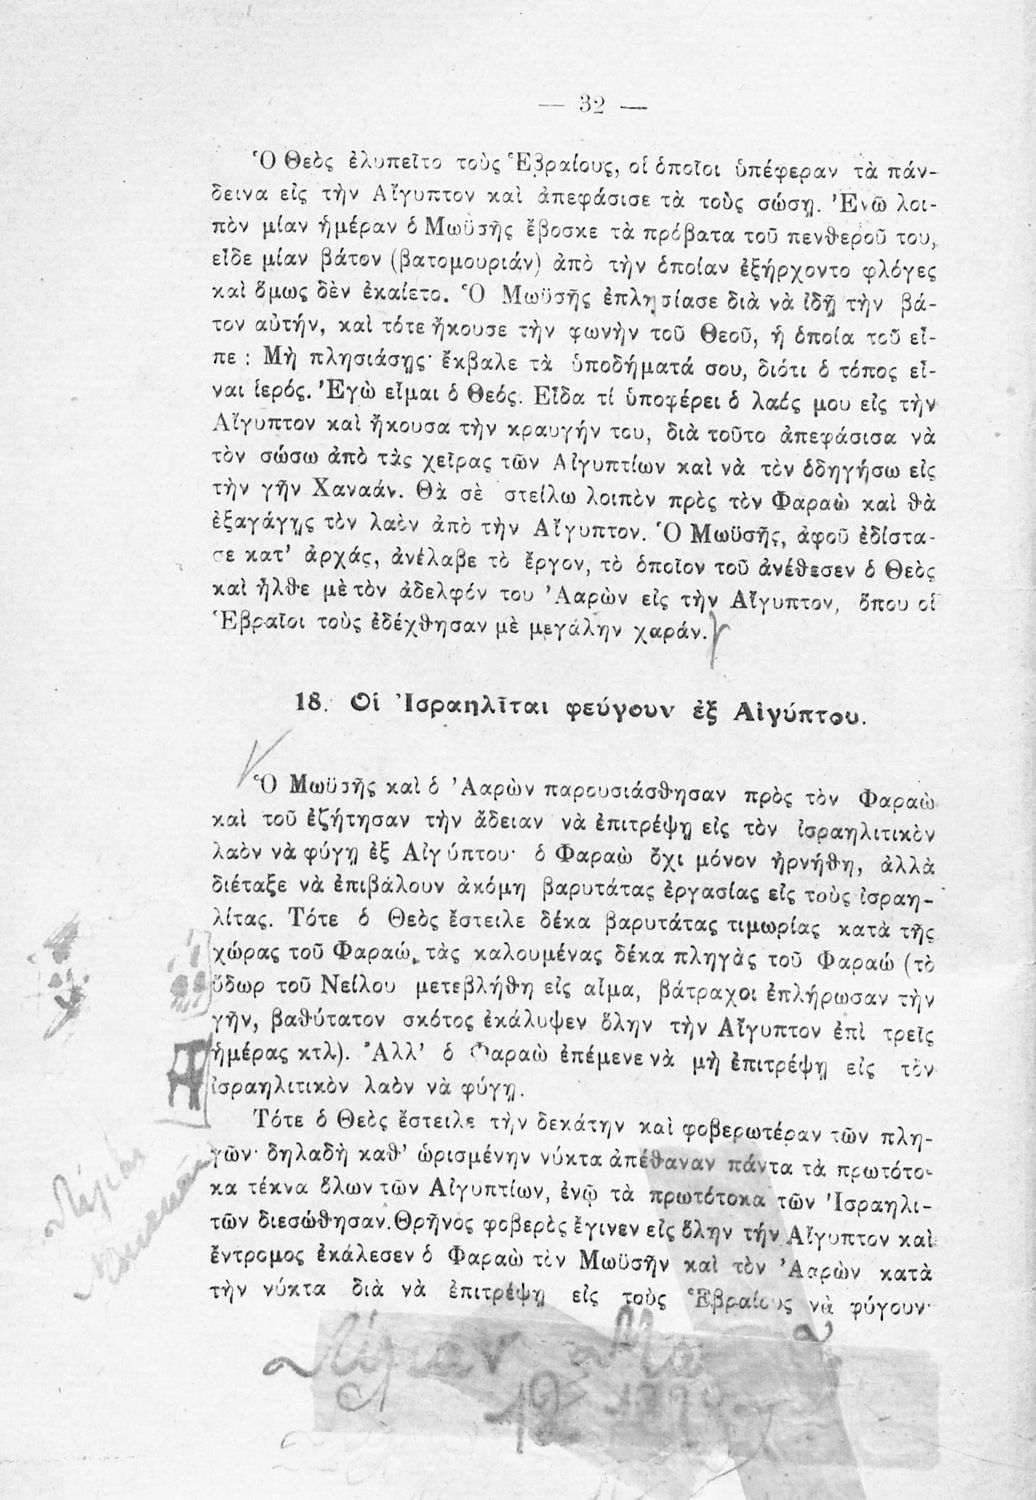 — 32 —
Ὁ Θεὸς ἐλυπεῖτο τοὺς Ἑβραίους, οἱ ὁποῖοι ὑπέφεραν τὰ πάν-
δεινα εἰς τὴν Αἴγυπτον καὶ ἀπεφάσισε τὰ τοὺς σώσῃ. Ἐνῶ λοι-
πὸν μίαν ἡμέραν ὁ Μωϋσῆς ἔβοσκε τὰ πρόβατα τοῦ πενθεροῦ του,
εἶδε μίαν βάτον (βατομουριάν) ἀπὸ τὴν ὁποίαν ἐξήρχοντο φλόγες
καὶ ὅμως δὲν ἐκαίετο. Ὁ Μωϋσῆς ἐπλησίασε διὰ νὰ ἰδῇ τὴν βά-
τον αὐτήν, καὶ τότε ἤκουσε τὴν φωνὴν τοῦ Θεοῦ, ἡ ὁποία τοῦ εἶ-
πε : Μὴ πλησιάσῃς· ἔκβαλε τὰ ὑποδήματά σου, διότι ὁ τόπος εἶ-
ναι ἱερός. Ἐγὼ εἶμαι ὁ Θεός. Εἶδα τί ὑποφέρει ὁ λαός μου εἰς τὴν
Αἴγυπτον καὶ ἤκουσα τὴν κραυγήν του, διὰ τοῦτο ἀπεφάσισα νὰ
τὸν σώσω ἀπὸ τὰς χεῖρας τῶν Αἰγυπτίων καὶ νὰ τὸν ὁδηγήσω εἰς
τὴν γῆν Χαναάν. Θὰ σὲ στείλω λοιπὸν πρὸς τὸν Φαραὼ καὶ θὰ
ἐξαγάγῃς τὸν λαὸν ἀπὸ τὴν Αἴγυπτον. Ὁ Μωϋσῆς, ἀφοῦ ἐδίστα-
σε κατ’ ἀρχάς, ἀνέλαβε τὸ ἔργον, τὸ ὁποῖον τοῦ ἀνέθεσεν ὁ Θεὸς
καὶ ἦλθε μὲ τὸν ἀδελφόν του Ἀαρὼν εἰς τὴν Αἴγυπτον, ὅπου οἱ
Ἑβραῖοι τοὺς ἐδέχθησαν μὲ μεγάλην χαράν.
18. Οἱ Ἰσραηλῖται φεύγουν ἐξ Αἰγύπτου.
Ὁ Μωϋσῆς καὶ ὁ Ἀαρὼν παρουσιάσθησαν πρὸς τὸν Φαραὼ
καὶ τοῦ ἐζήτησαν τὴν ἄδειαν νὰ ἐπιτρέψῃ εἰς τὸν ἰσραηλιτικὸν
λαὸν νὰ φύγῃ ἐξ Αἰγύπτου· ὁ Φαραὼ ὄχι μόνον ἠρνήθη, ἀλλὰ
διέταξε νὰ ἐπιβάλουν ἀκόμη βαρυτάτας ἐργασίας εἰς τοὺς ἰσραη-
λίτας. Τότε ὁ Θεὸς ἔστειλε δέκα βαρυτάτας τιμωρίας κατὰ τῆς
χώρας τοῦ Φαραώ, τὰς καλουμένας δέκα πληγὰς τοῦ Φαραώ (τὸ
ὕδωρ τοῦ Νείλου μετεβλήθη εἰς αἷμα, βάτραχοι ἐπλήρωσαν τὴν
γῆν, βαθύτατον σκότος ἐκάλυψεν ὅλην τὴν Αἴγυπτον ἐπὶ τρεῖς
ἡμέρας κτλ). Ἀλλ’ ὁ Φαραὼ ἐπέμενε νὰ μὴ ἐπιτρέψῃ εἰς τὸν
ἰσραηλιτικὸν λαὸν νὰ φύγῃ.
Τότε ὁ Θεὸς ἔστειλε τὴν δεκάτην καὶ φοβερωτέραν τῶν πλη-
γῶν· δηλαδὴ καθ’ ὡρισμένην νύκτα ἀπέθαναν πάντα τὰ πρωτότο-
κα τέκνα ὅλων τῶν Αἰγυπτίων, ἐνῷ τὰ πρωτότοκα τῶν Ἰσραηλι-
τῶν διεσώθησαν. Θρῆνος φοβερὸς ἔγινεν εἰς ὅλην τὴν Αἴγυπτον καὶ
ἔντρομος ἐκάλεσεν ὁ Φαραὼ τὸν Μωϋσῆν καὶ τὸν Ἀαρὼν κατὰ
τὴν νύκτα διὰ νὰ ἐπιτρέψῃ εἰς τοὺς Ἑβραίους νὰ φύγουν·